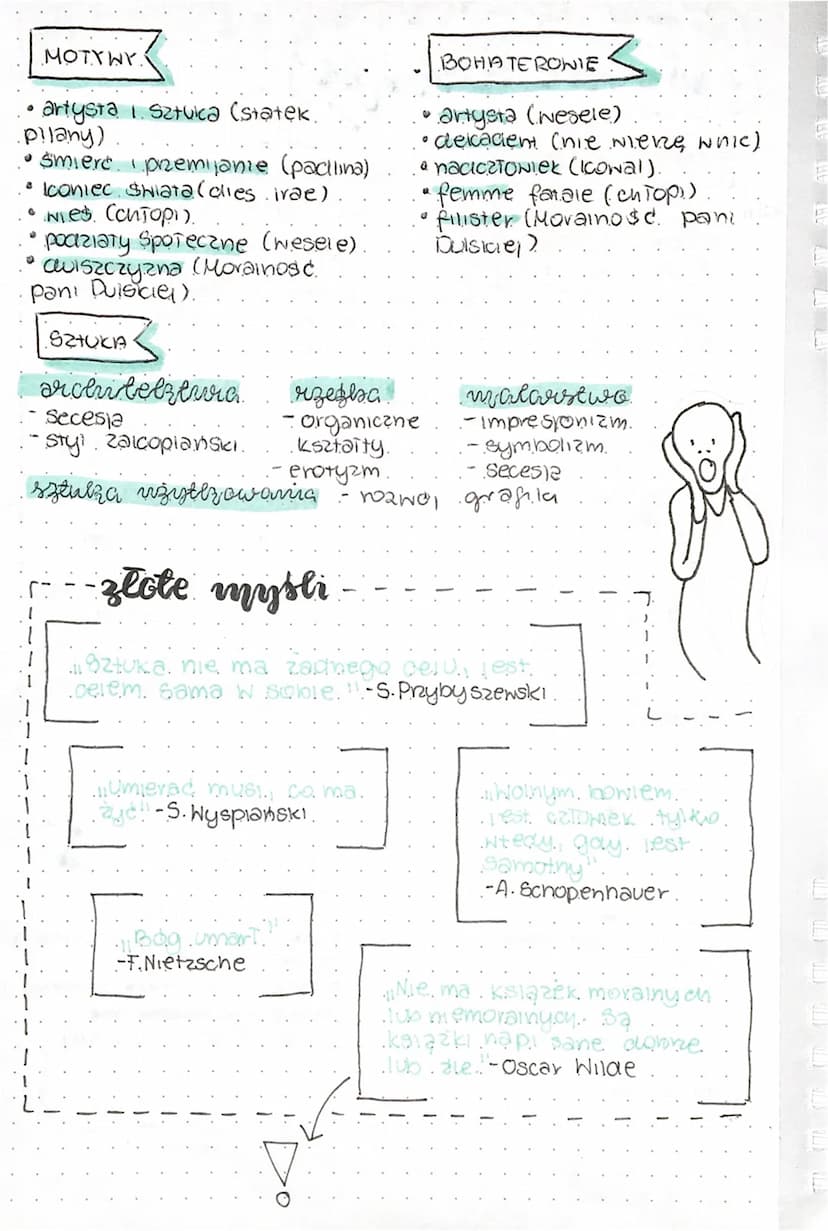 MOTYWY
• artysta i sztuka (statek
pijany)
• śmierć i przemijanie (padlina)
• koniec świata (dies irae)
• wieś (chłopi)
• podziały społeczne (wesele)
• dulszczyzna (Moralność
pani Dulskiej)
BOHATEROWIE
• artysta (wesele)
• dekadent (nie wierzę w nic)
• nadczłowiek (kowal)
• femme fatale (chłopi)
• filister (Moralność pani
Dulskiej)
SZTUKA
architektura
- secesja
- styl zakopiański
rzeźba
- organiczne
kształty
- erotyzm
malarstwo
- impresjonizm
- symbolizm
- secesja
sztuka użytkowania - rozwój grafika
złote myśli
„Sztuka nie ma żadnego celu, jest
celem sama w sobie." - S. Przybyszewski
„Umierać musi, co ma
żyć" - S. Wyspiański
„Wolnym bowiem
jest człowiek tylko
wtedy, gdy jest
samotny"
- A. Schopenhauer
„Bóg umarł."
- F. Nietzsche
„Nie ma książek moralnych
lub niemoralnych. Są
książki napisane dobrze
lub źle." - Oscar Wilde